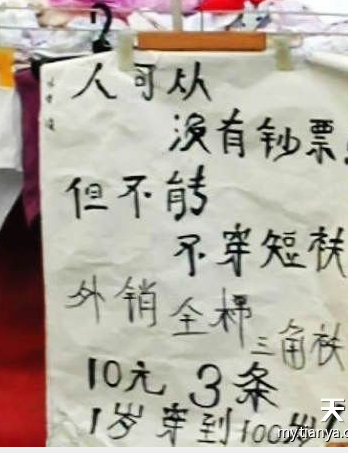 人可以
没有钞票
但不能
不穿短衭
外销全棉
三角衭
10元 3条
1岁穿到100岁
天
mytianya.co